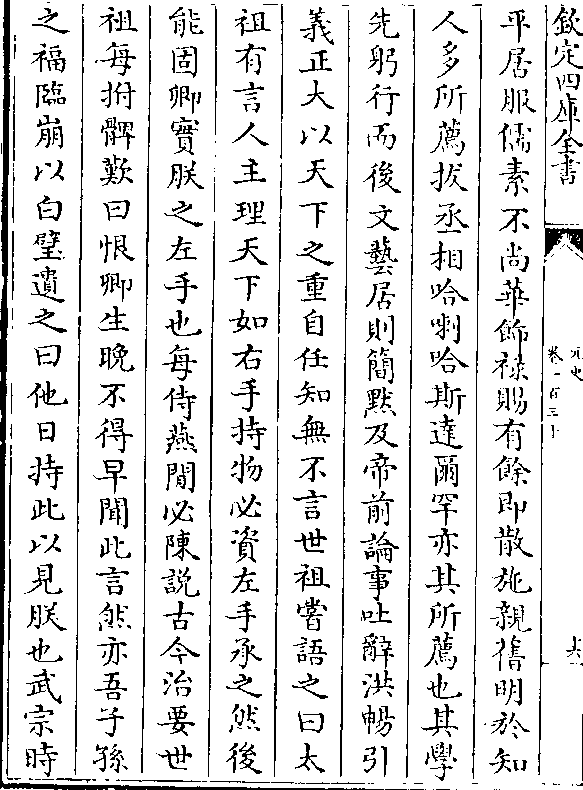 欽定四庫全書
元史
卷一百三十
平居服儒素不尚華飾禄賜有餘即散施親舊明於知
人多所薦拔丞相哈喇哈斯達爾罕亦其所薦也其學
先躬行而後文藝居則簡默及帝前論事吐辭洪暢引
義正大以天下之重自任知無不言世祖嘗語之曰太
祖有言人主理天下如右手持物必資左手承之然後
能固卿實朕之左手也每侍燕間必陳說古今治要世
祖每拊髀歎曰恨卿生晚不得早聞此言然亦吾子孫
之福臨崩以白璧遺之曰他日持此以見朕也武宗時